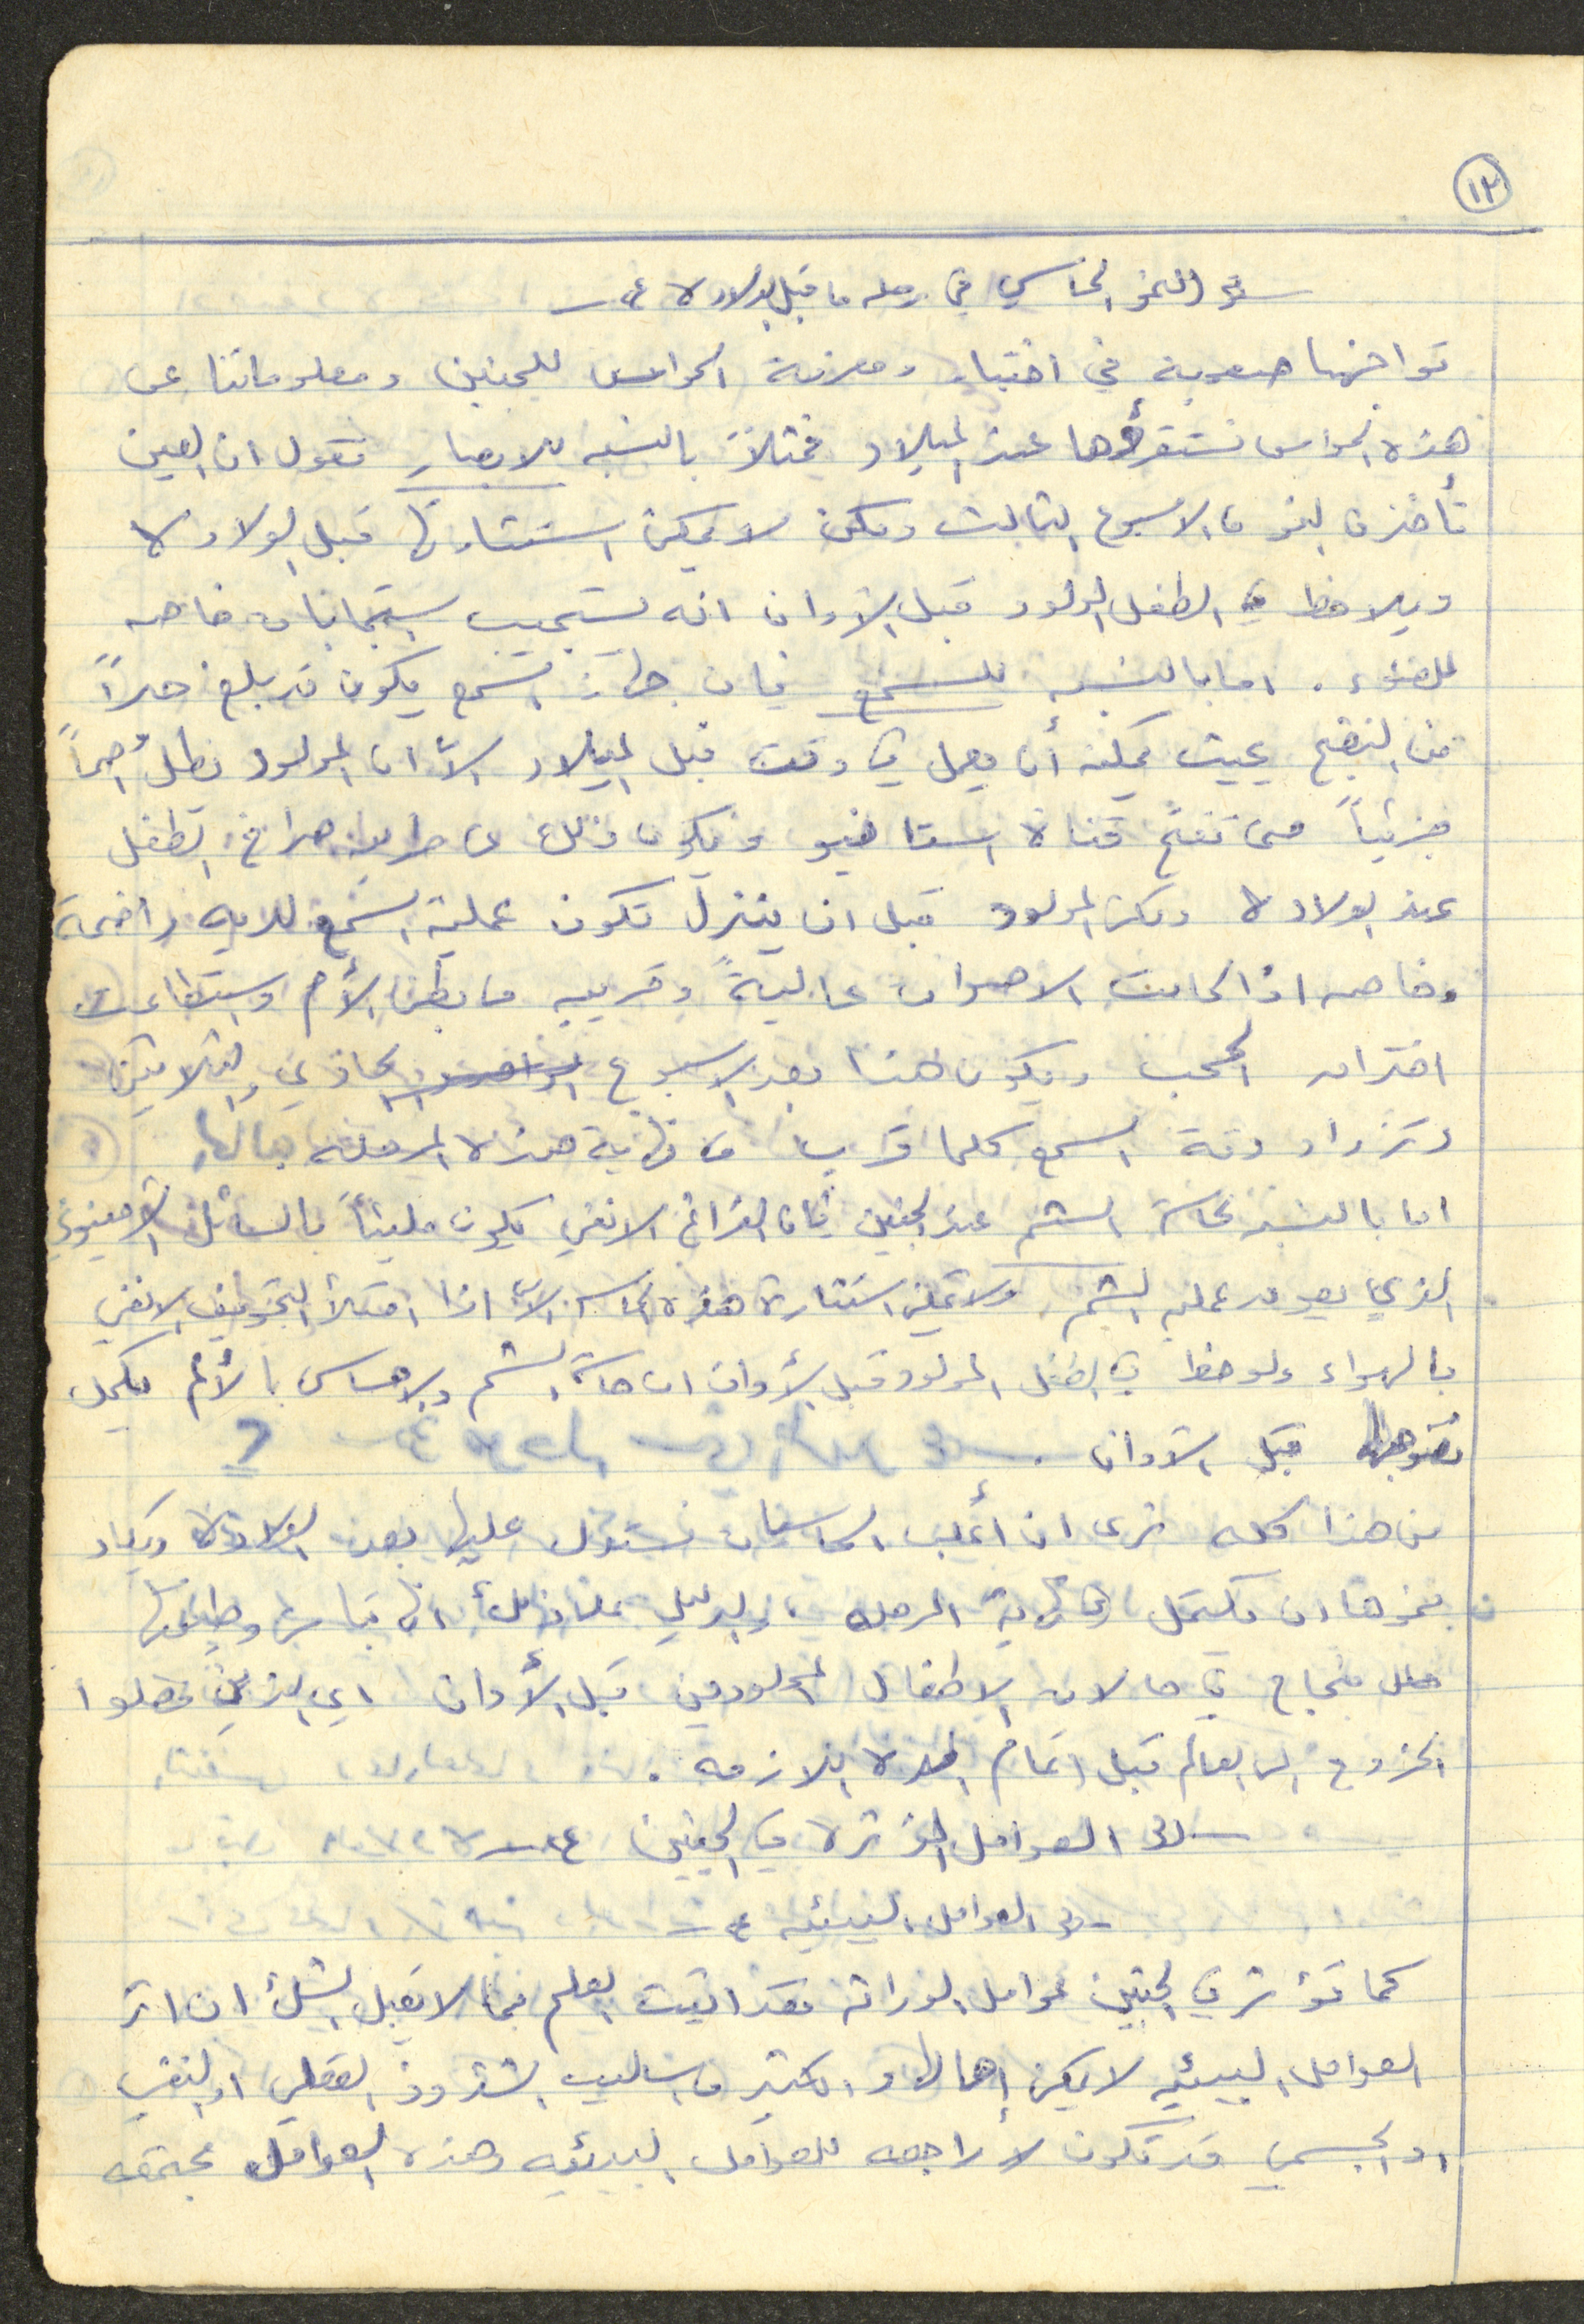 ١٢
النمو الحاسي في مرحلة ما قبل الولادة
تواجهنا صعوبة في اختبار ومعرفة الحواس للجنين ومعلوماتنا عن
هذه الحواس نستقرؤها عند الميلاد فمثلاً بالنسبه للابصار نقول ان العين
تأخذ في النمو من الاسبوع الثالث ولكن لا يمكن استثارتها قبل الولادة
ويلاحظ في الطفل المولود قبل الاوان انه يستجيب استجابات خاصه
للضوء . اما بالنسبه للسمع فان جهاز السمع يكون قد بلغ حداً
من النضج بحيث يمكنه أن يعمل في وقت قبل الميلاد الاّ ان المولود يظل أصماً
جزئياً حتى تفتح قناة استاخيو ويكون ذلك عن طريق صراخ الطفل
عند الولادة ولكن المولود قبل ان ينزل تكون عملية السمع لديه واضحة
وخاصه اذا كانت الاصوات عاليةً وقريبه من بطن الأم واستطاعت
اختراق الحجب ويكون هذا بعد الاسبوع الحادي والثلاثين
وتزداد دقة السمع كلما قرب من نهاية هذه المرحله
اما بالنسبة لحاسة الشم عند الجنين فان الفراغ الانفي يكون مليئاً بالسائل الامنيوني
الذي يعوق عملية الشم ولا يمكن استثارة هذه الحاسه الاّ اذا امتلأ التجويف الانفي
بالهواء ولوحظ في الطفل المولود قبل الأوان ان حاسة الشم والاحساس بالألم يكمل
نضوجها قبل الاوان .
من هذا كله نرى ان أغلب الحاسات نستدل عليها بعد الولادة ويكاد
نموها ان يكتمل في نهاية المرحله والدليل على ذلك انها تباشر وظيفتها
بنجاح في حالات الاطفال المولودين قبل الأوان اي الذين فضلوا
الخروج الى العالم قبل اتمام المدة اللازمه .
العوامل المؤثرة في الجنين
العوامل البيئيه
كما تؤثر في الجنين عوامل الوراثه فقد اثبت العلم بما لا يقبل الشك ان اثر
العوامل البيئيه لا يمكن إهمالها و الكثير من اساليب الشذوذ العقلي او النفسي
او الجسمي قد تكون راجعه للعوامل البيئيه وهذه العوامل مجتمعه